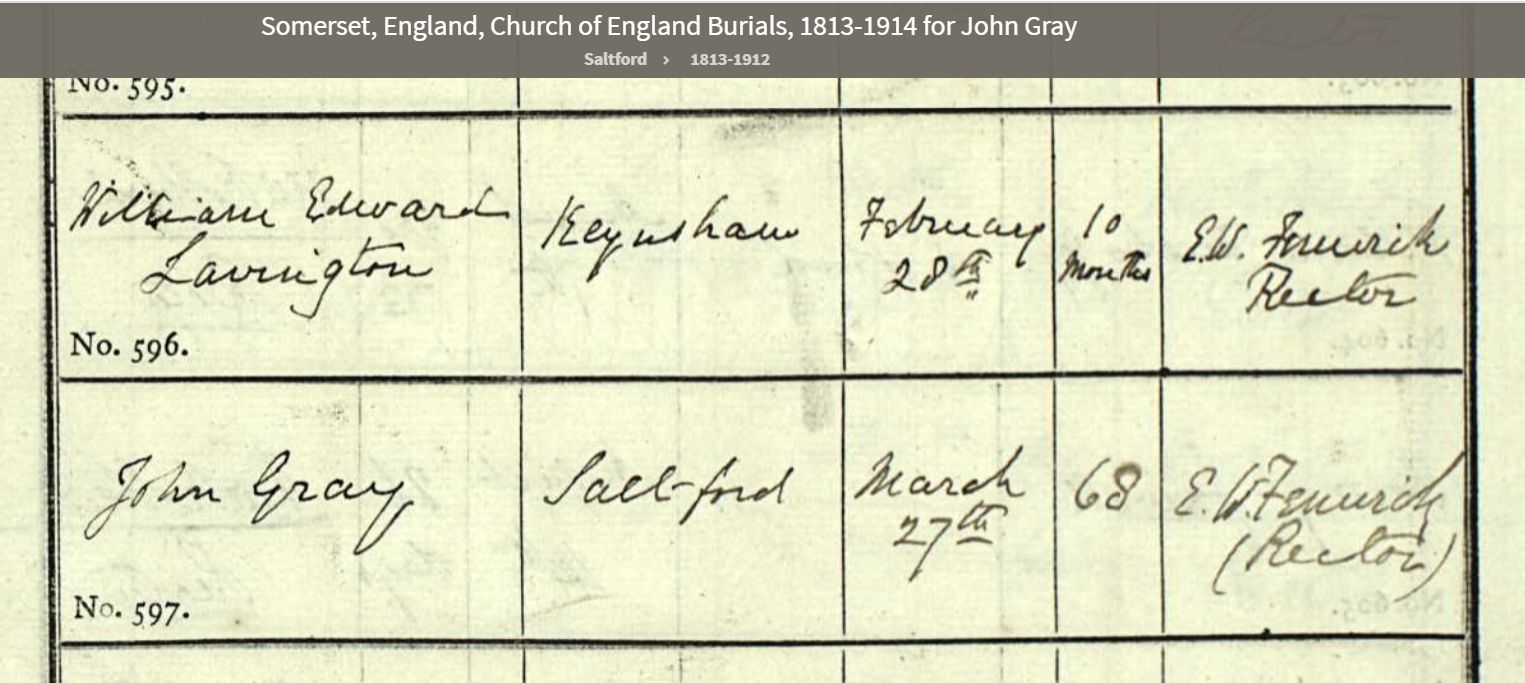 Somerset, England, Church of England Burials, 1813-1914 for John Gray
Saltford › 1813-1912
No. 595.
William Edward
Lavington
Keynsham
February
28th
10
Months
E.W. Fenwick
Rector
No. 596.
John Gray
Saltford
March
27th
68
E.W. Fenwick
(Rector)
No. 597.